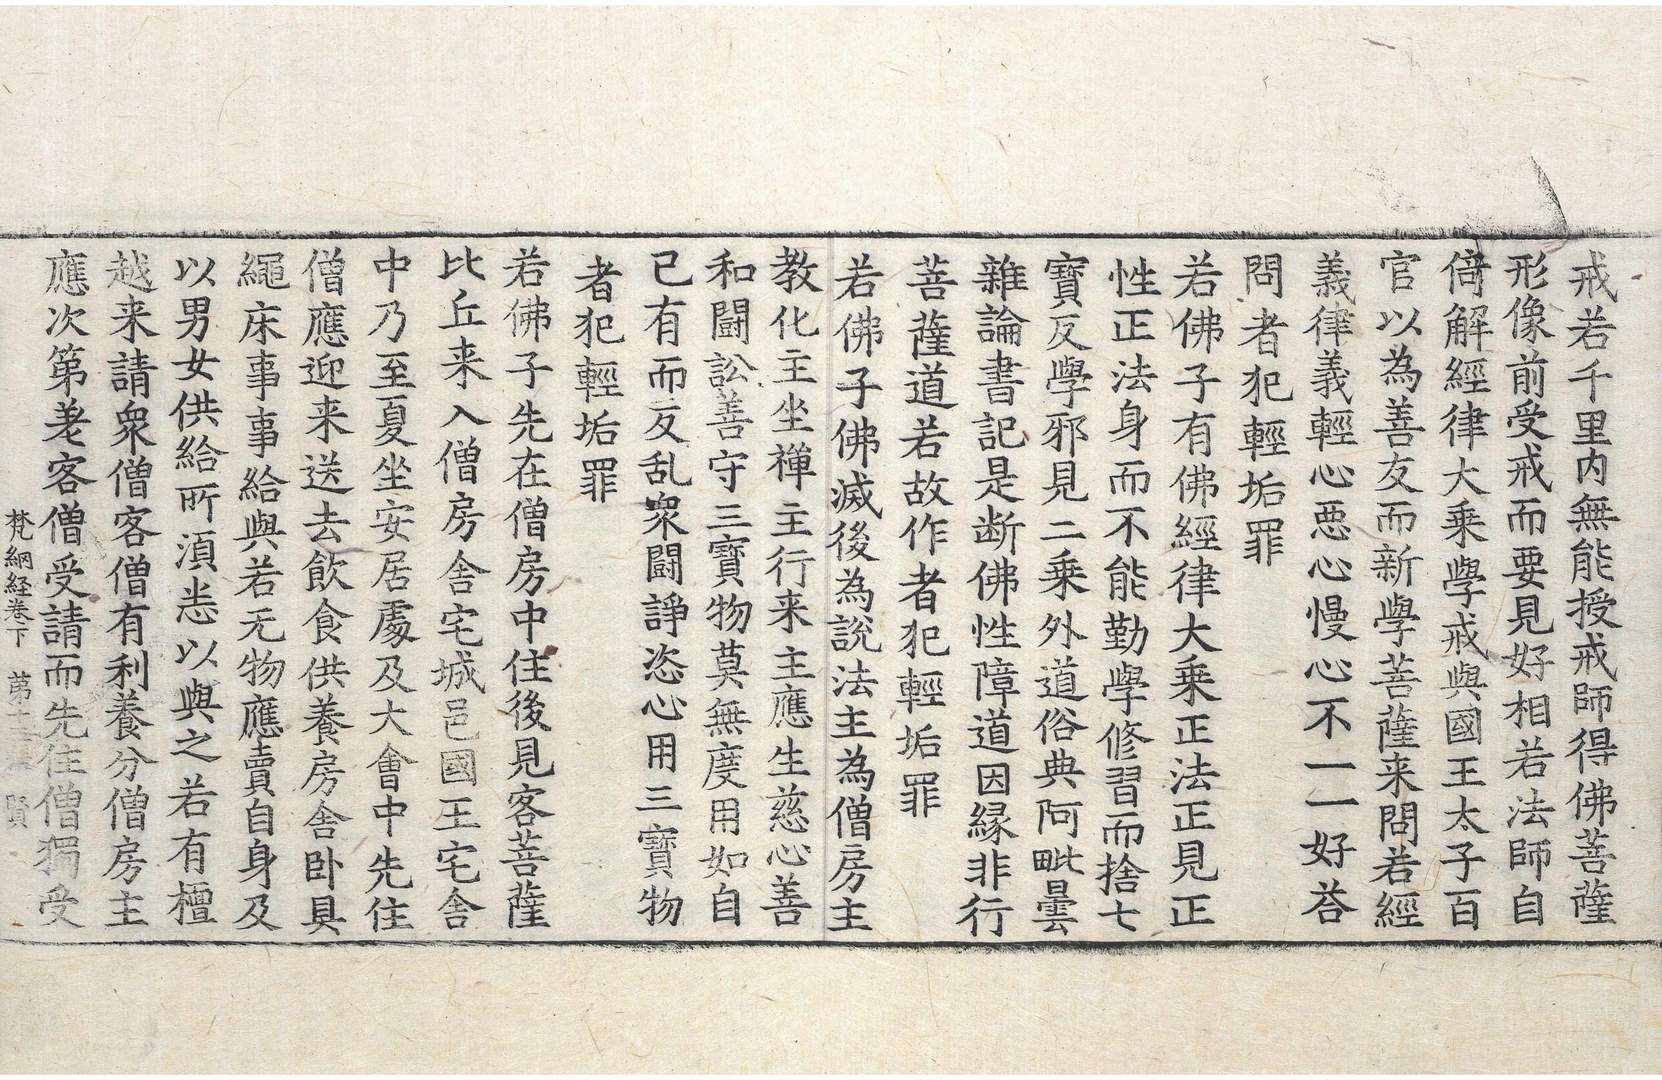 戒若千里内無能授戒師得佛菩薩
形像前受戒而要見好相若法師自
倚解經律大乗學戒與國王太子百
官以為善友而新學菩薩来問若經
義律義輕心惡心慢心不一一好荅
問者犯輕垢罪
若佛子有佛經律大乗正法正見正
性正法身而不能勤學修習而捨七
寶反學邪見二乗外道俗典阿毗曇
雜論書記是断佛性障道因縁非行
菩薩道若故作者犯輕垢罪
若佛子佛滅後為說法主為僧房主
教化主坐禅主行来主應生慈心善
和闘訟善守三寶物莫無度用如自
己有而反乱衆闘諍恣心用三寶物
者犯輕垢罪
若佛子先在僧房中住後見客菩薩
比丘来入僧房舎宅城邑國王宅舎
中乃至夏坐安居處及大會中先住
僧應迎来送去飲食供養房舎卧具
繩床事事給與若无物應賣自身及
以男女供給所湏悉以與之若有檀
越来請衆僧客僧有利養分僧房主
應次第差客僧受請而先住僧獨受
梵網経巻下 第 賢